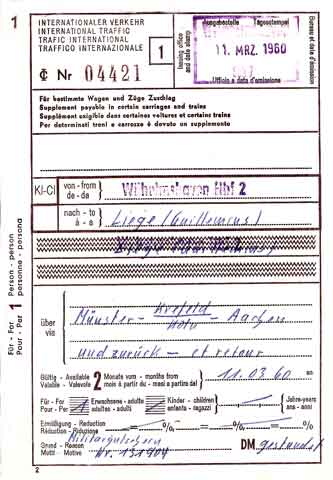 1
INTERNATIONALER VERKEHR
INTERNATIONAL TRAFFIC
TRAFIC INTERNATIONAL
TRAFFICO INTERNAZIONALE
₵ Nr 04421
1
Issuing office and date stamp
Ausgabestelle Tagesstempel
11. MRZ. 1960
Ufficio e data d'emissione
Bureau et date d'émission
Für bestimmte Wagen und Züge Zuschlag
Supplement payable in certain carriages and trains
Supplément exigible dans certaines voitures et certains trains
Per determinati treni e carrozze è dovuto un supplemento
KI-CI
von - from
de - da
Wilhelmshaven Hbf 2
nach - to
à - a
Liège (Guillemins)
Für - For 1 Person - person
Pour - Per personne - persona
über
via
Münster - Krefeld - Aachen
Köln
und zurück - et retour
Gültig - Available 2 Monate vom - months from
Valable - Valevole mois à partir du - mesi a partire dal
11.03.60 an
Für - For 1 Erwachsene - adults
Pour - Per adultes - adulti
Kinder - children
enfants - ragazzi
Jahre-years
ans - anni
Ermäßigung - Reduction
Réduction - Riduzione
% %
Grund - Reason
Motif - Motivo
Militärgutschein
Nr. 131904
DM gestundet
2